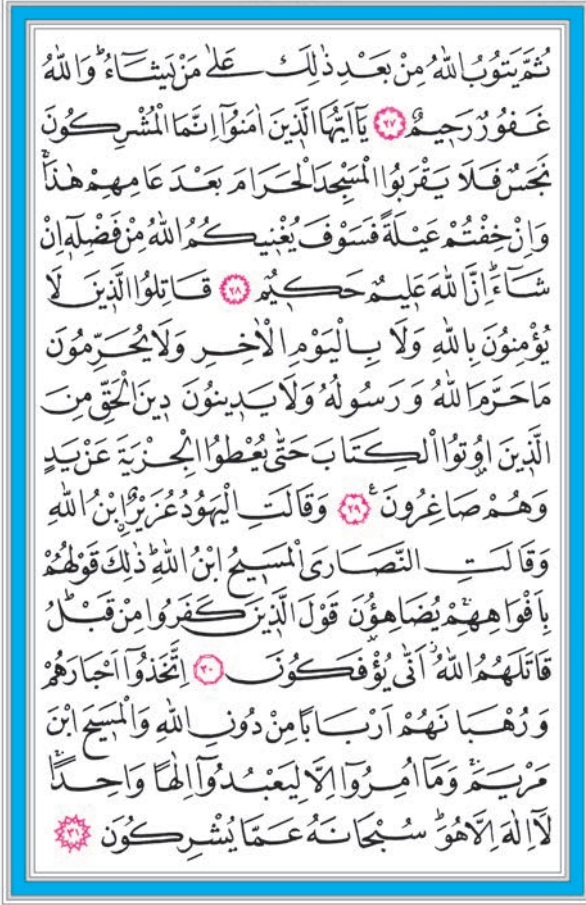 ثُمَّ يَتُوبُ اللّٰهُ مِنْ بَعْدِ ذٰلِكَ عَلٰى مَنْ يَشَٓاءُۜ وَاللّٰهُ
غَفُورٌ رَح۪يمٌ ﴿٢٧﴾ يَٓا اَيُّهَا الَّذ۪ينَ اٰمَنُٓوا اِنَّمَا الْمُشْرِكُونَ
نَجَسٌ فَلَا يَقْرَبُوا الْمَسْجِدَ الْحَرَامَ بَعْدَ عَامِهِمْ هٰذَاۚ
وَاِنْ خِفْتُمْ عَيْلَةً فَسَوْفَ يُغْن۪يكُمُ اللّٰهُ مِنْ فَضْلِه۪ٓ اِنْ
شَٓاءَۜ اِنَّ اللّٰهَ عَل۪يمٌ حَك۪يمٌ ﴿٢٨﴾ قَاتِلُوا الَّذ۪ينَ لَا
يُؤْمِنُونَ بِاللّٰهِ وَلَا بِالْيَوْمِ الْاٰخِرِ وَلَا يُحَرِّمُونَ
مَا حَرَّمَ اللّٰهُ وَرَسُولُهُ وَلَا يَد۪ينُونَ د۪ينَ الْحَقِّ مِنَ
الَّذ۪ينَ اُو۫تُوا الْكِتَابَ حَتّٰى يُعْطُوا الْجِزْيَةَ عَنْ يَدٍ
وَهُمْ صَاغِرُونَ۟ ﴿٢٩﴾ وَقَالَتِ الْيَهُودُ عُزَيْرٌۨ ابْنُ اللّٰهِ
وَقَالَتِ النَّصَارَى الْمَس۪يحُ ابْنُ اللّٰهِۜ ذٰلِكَ قَوْلُهُمْ
بِاَفْوَاهِهِمْۚ يُضَاهِؤُ۫نَ قَوْلَ الَّذ۪ينَ كَفَرُوا مِنْ قَبْلُۜ
قَاتَلَهُمُ اللّٰهُۘ اَنّٰى يُؤْفَكُونَ ﴿٣٠﴾ اِتَّخَذُٓوا اَحْبَارَهُمْ
وَرُهْبَانَهُمْ اَرْبَابًا مِنْ دُونِ اللّٰهِ وَالْمَس۪يحَ ابْنَ
مَرْيَمَۚ وَمَٓا اُمِرُٓوا اِلَّا لِيَعْبُدُٓوا اِلٰهًا وَاحِدًاۚ
لَٓا اِلٰهَ اِلَّا هُوَۜ سُبْحَانَهُ عَمَّا يُشْرِكُونَ ﴿٣١﴾